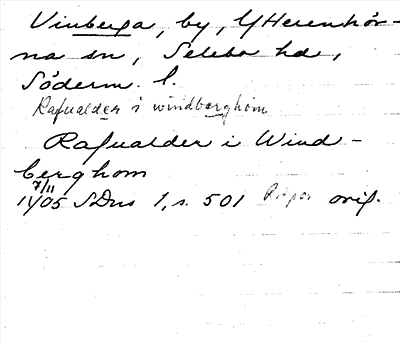 Vinberga, by, Ytterenhör-
na sn, Selebo hd,
Söderm. l.
Rafualder i windberghom
Rafualder i Wind-
berghom
7/11
1405 SDns 1, s. 501 Papor orig.